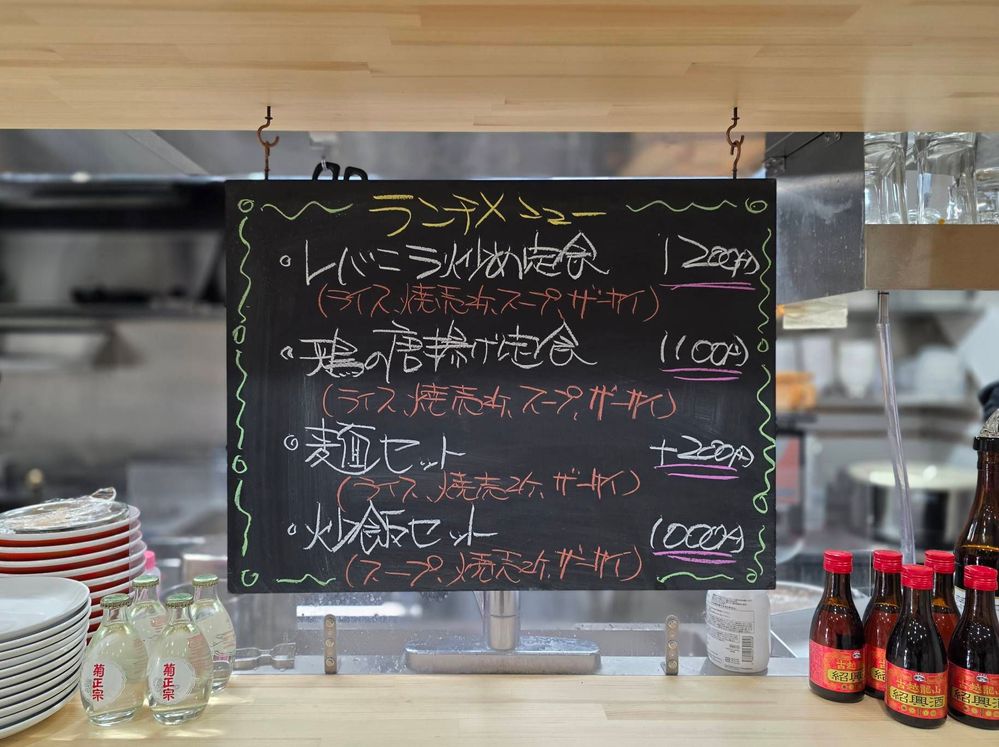 ランチメニュー
レバニラ炒め定食 1200円
(ライス、焼売2ヶ、スープ、ザーサイ)
鶏の唐揚げ定食 1100円
(ライス、焼売2ヶ、スープ、ザーサイ)
麺セット +200円
(ライス、焼売2ヶ、ザーサイ)
炒飯セット 1000円
(スープ、焼売2ヶ、ザーサイ)
菊正宗
菊正宗
古越龍山
紹興酒
古越龍山
紹興酒
古越龍山
紹興酒